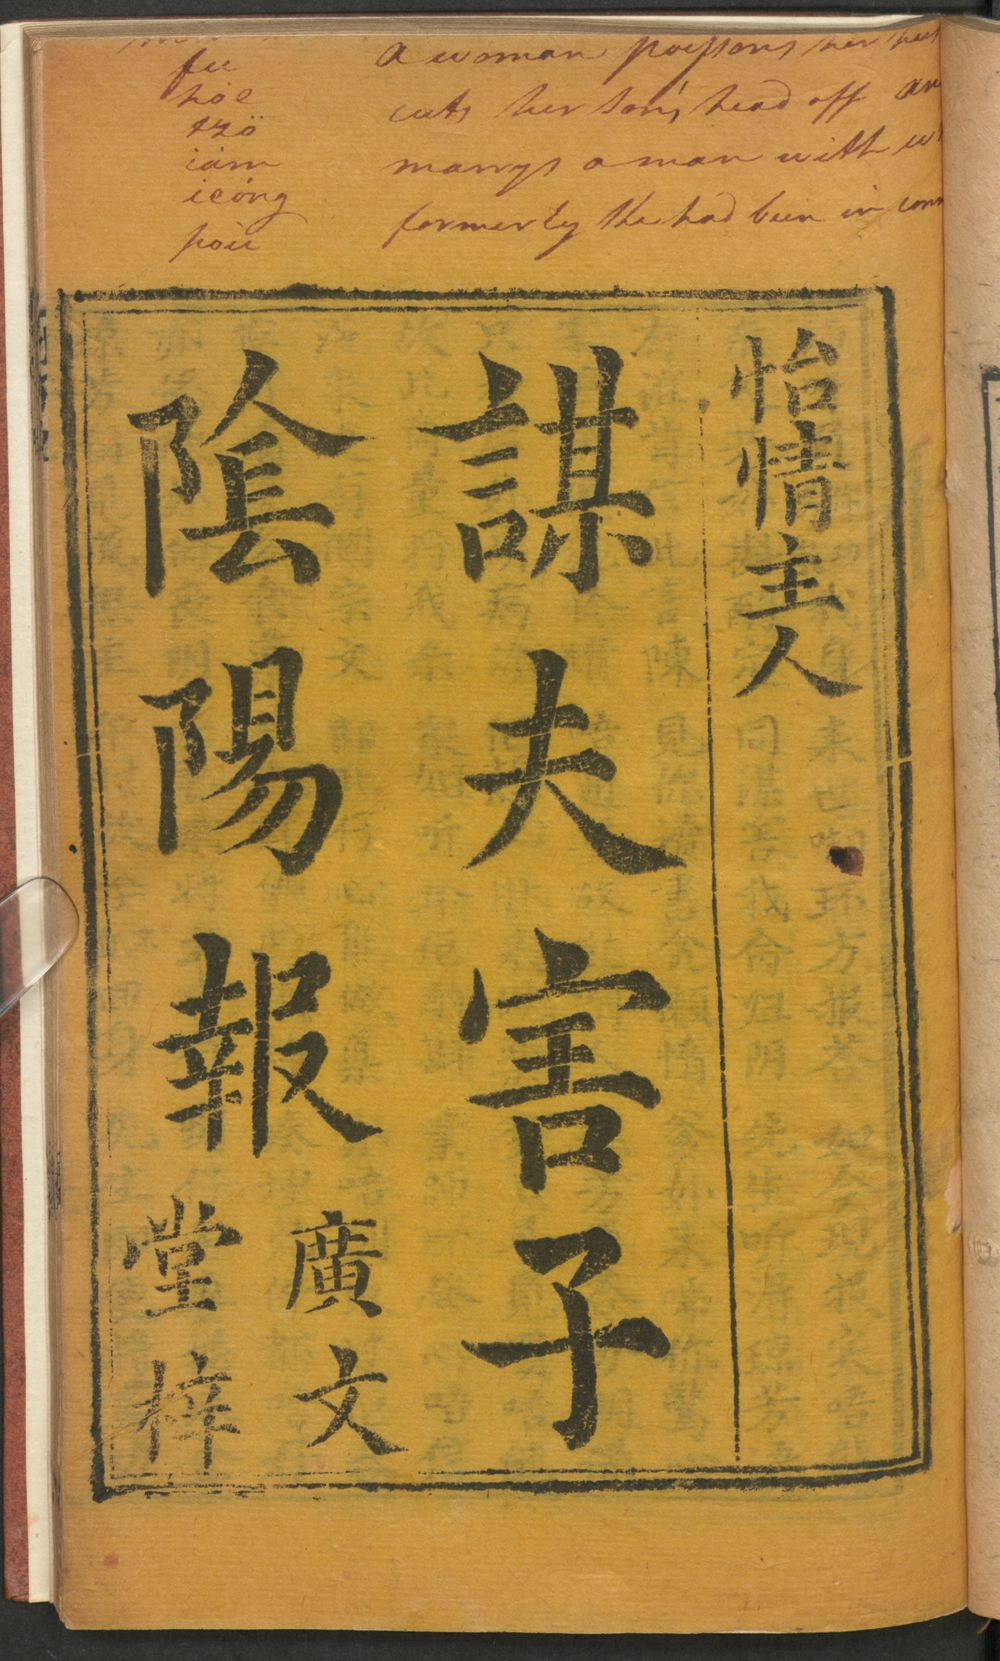 fu
hoe
tzö
iám
ieóng
póu
a woman poysons her
cuts her son's head off
marrys a man with
formerly she had been in
怡情主人
謀夫害子
陰陽報
廣文
堂梓